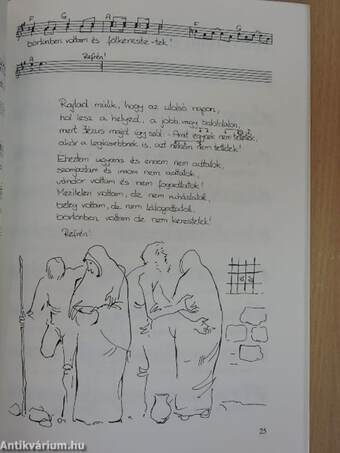 F G A F G
börtönben voltam és fölkerestetek!
A Refrén!
Rajtad múlik, hogy az utolsó napon,
hol lesz a helyed, a jobb, vagy baloldalon,
mert Jézus majd így szól: - Amit egynek nem tettetek,
akár a legkisebbnek is, azt nékem nem tettétek!
Éheztem ugyanis és ennem nem adtatok,
szomjaztam és innom nem adtatok,
vándor voltam és nem fogadtatok!
Mezítelen voltam, de nem ruháztatok,
beteg voltam, de nem látogattatok,
börtönben voltam de nem kerestetek!
Refrén!
25
Antikvárium.hu